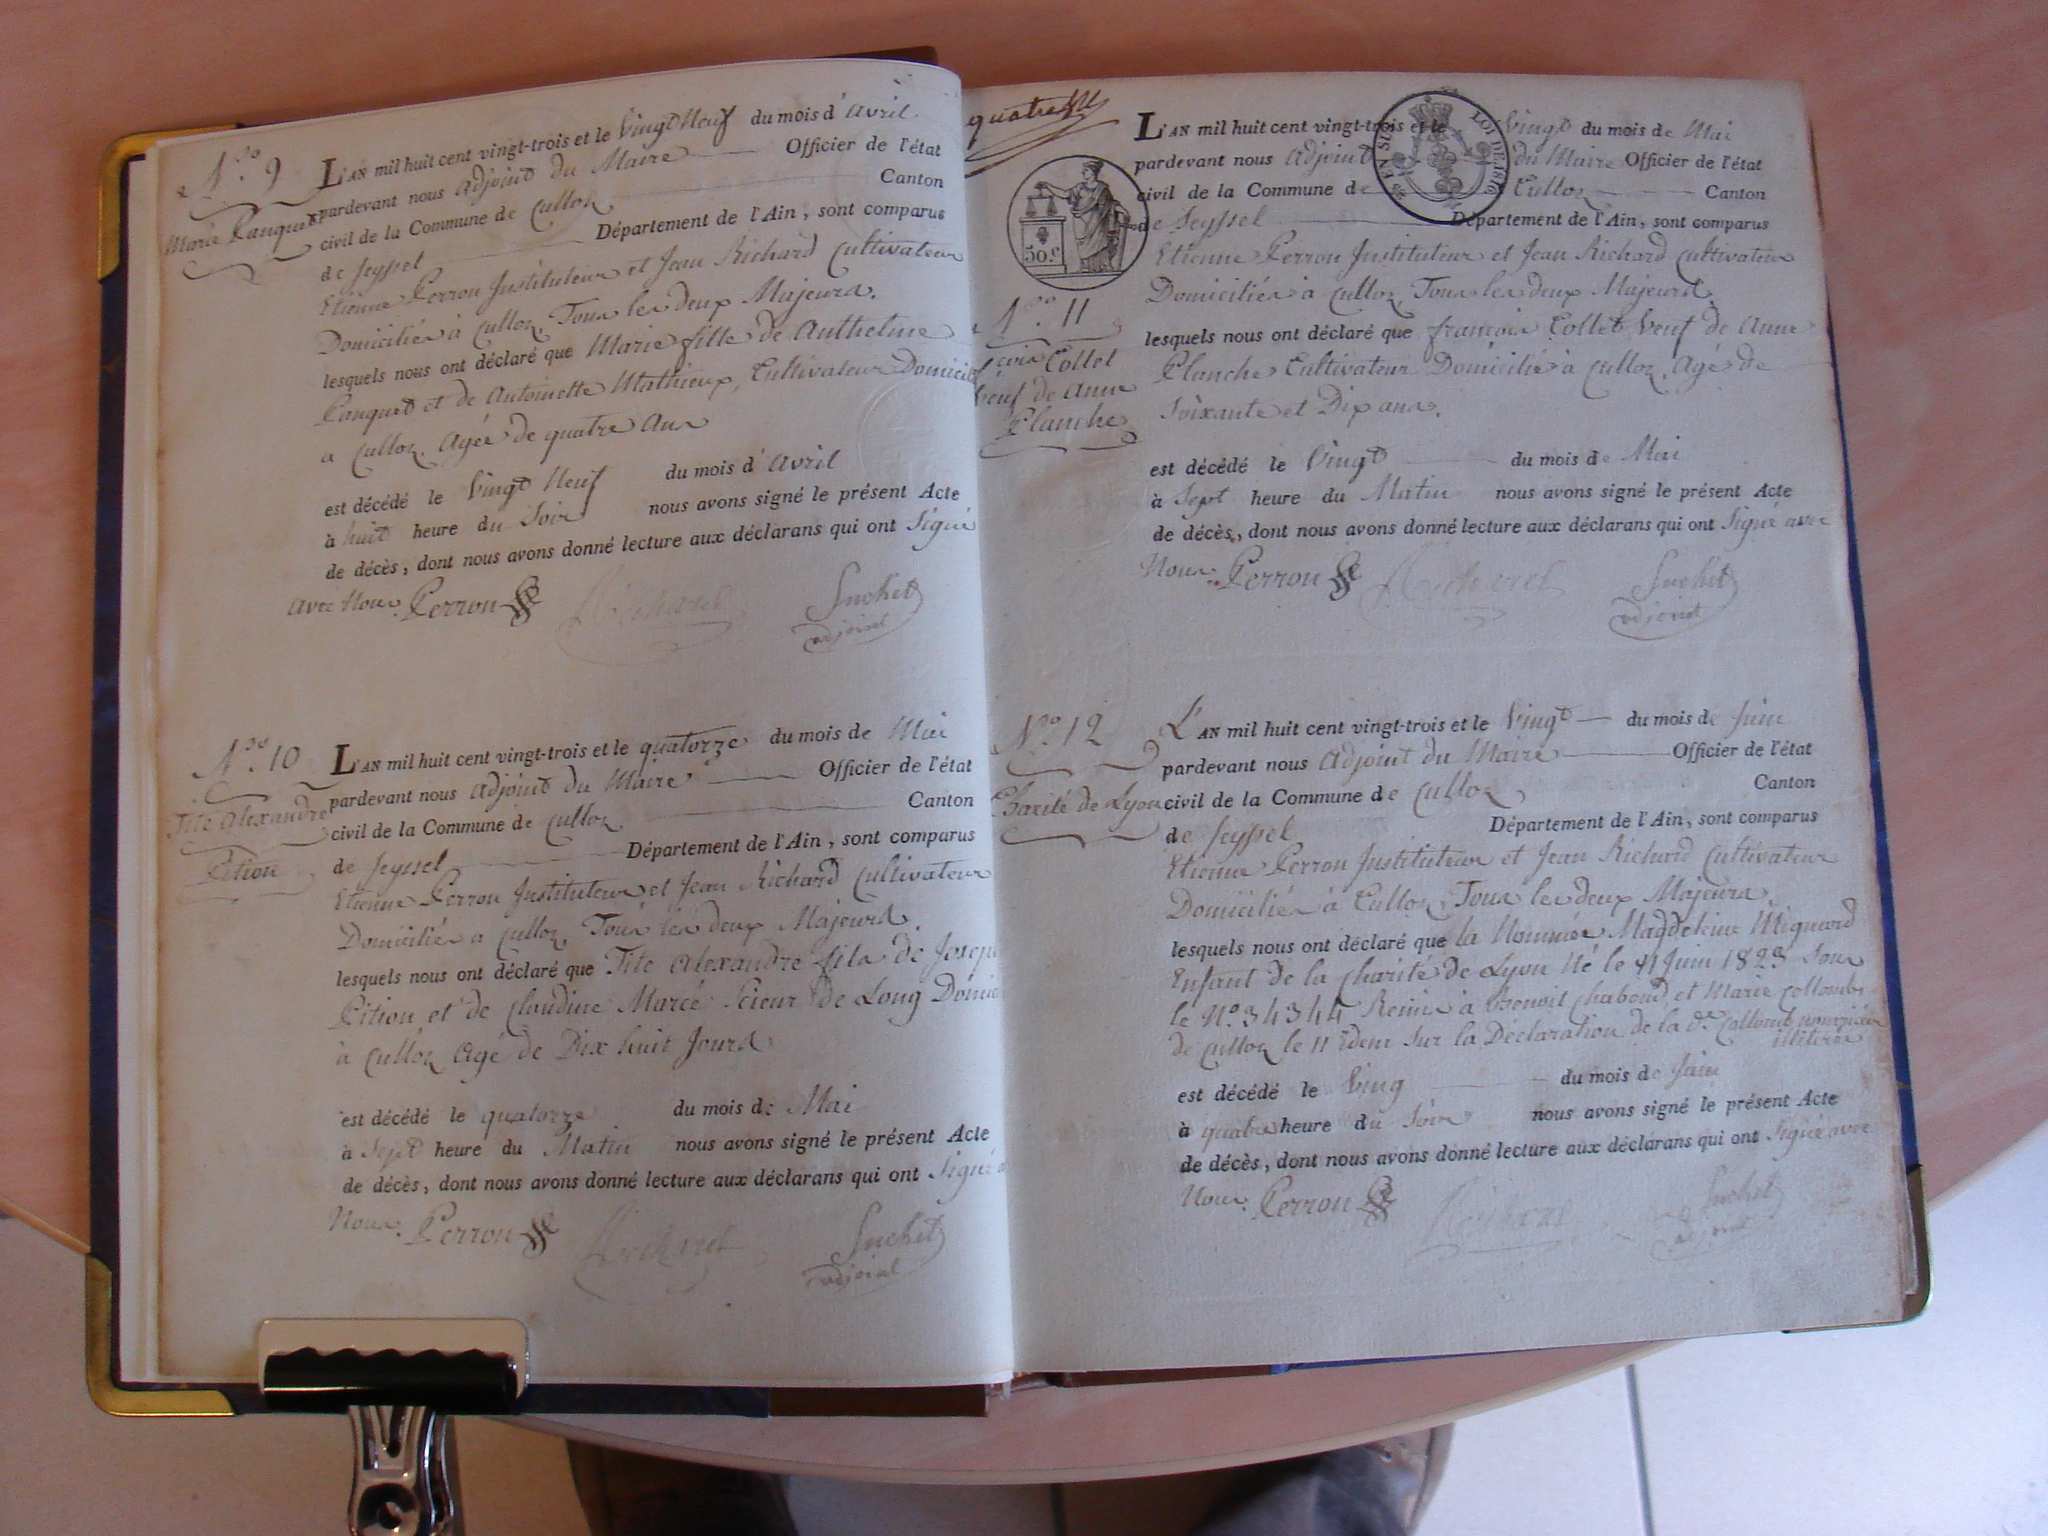 N.ro 9
Marie Panquet
L'AN mil huit cent vingt-trois et le Vingt Neuf du mois d'Avril
pardevant nous Adjoint du Maire Officier de l'état
civil de la Commune de Culloz Canton
de Seyssel Département de l'Ain, sont comparus
Etienne Perron Instituteur et Jean Richard Cultivateur
Domiciliés à Culloz, Tous les deux Majeurs.
lesquels nous ont déclaré que Marie fille de Anthelme
Panquet et de Antoinette Mathieux, Cultivateur Domicil
a Culloz, Agée de quatre Ans
est décédé le Vingt Neuf du mois d'Avril
à huit heure du Soir nous avons signé le présent Acte
de décès, dont nous avons donné lecture aux déclarans qui ont Signé
avec Nous. Perron Richard Suchet
adjoint
N.ro 10
Tite Alexandre
Pition
L'AN mil huit cent vingt-trois et le quatorze du mois de Mai
pardevant nous Adjoint du Maire Officier de l'état
civil de la Commune de Culloz Canton
de Seyssel Département de l'Ain, sont comparus
Etienne Perron Instituteur et Jean Richard Cultivateur
Domiciliés a Culloz, Tous les deux Majeurs.
lesquels nous ont déclaré que Tite Alexandre fils de Josep
Pition et de Claudine Marcé Scieur de Long Domic
à Culloz Agé de Dix huit Jours
est décédé le quatorze du mois de Mai
à Sept heure du Matin nous avons signé le présent Acte
de décès, dont nous avons donné lecture aux déclarans qui ont Signé a
Nous. Perron Richard Suchet
adjoint
quatre
50.c
EN SUS
LOI DE 1816
N.ro 11
Collet
Veuf de Anne
Planche
L'AN mil huit cent vingt-trois et le Vingt du mois de Mai
pardevant nous Adjoint du Maire Officier de l'état
civil de la Commune de Culloz Canton
de Seyssel Département de l'Ain, sont comparus
Etienne Perron Instituteur et Jean Richard Cultivateur
Domiciliés à Culloz, Tous les deux Majeurs.
lesquels nous ont déclaré que françois Collet Veuf de Anne
Planche Cultivateur Domicilié à Culloz, Agé de
Soixante et Dix ans.
est décédé le Vingt du mois de Mai
à Sept heure du Matin nous avons signé le présent Acte
de décès, dont nous avons donné lecture aux déclarans qui ont Signé avec
Nous. Perron Richard Suchet
adjoint
N.ro 12
Charité de Lyon
L'AN mil huit cent vingt-trois et le Vingt du mois de Juin
pardevant nous Adjoint du Maire Officier de l'état
civil de la Commune de Culloz Canton
de Seyssel Département de l'Ain, sont comparus
Etienne Perron Instituteur et Jean Richard Cultivateur
Domiciliés à Culloz, Tous les deux Majeurs,
lesquels nous ont déclaré que la Nommée Magdeleine Mignard
Enfant de la Charité de Lyon Né le 11 Juin 1823 Sous
le N.o 34344 Remis à Benoit Chaboud, et Marie Collomb
de Culloz le 11 idem Sur la Declaration de la d.e Collomb nourricière
illiterée
est décédé le Ving du mois de Juin
à quatre heure du Soir nous avons signé le présent Acte
de décès, dont nous avons donné lecture aux déclarans qui ont Signé avec
Nous. Perron Richard Suchet
adjoint